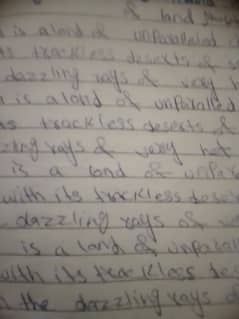 of land
is a land of unparalled
trackless deserts of
dazzling rays of very h
is a land of unparalled
as trackless deserts of
zling rays of very hot
is a land of unpara
with its trackless dese
dazzling rays of
is a land of unparal
with its trackless des
the dazzling rays of